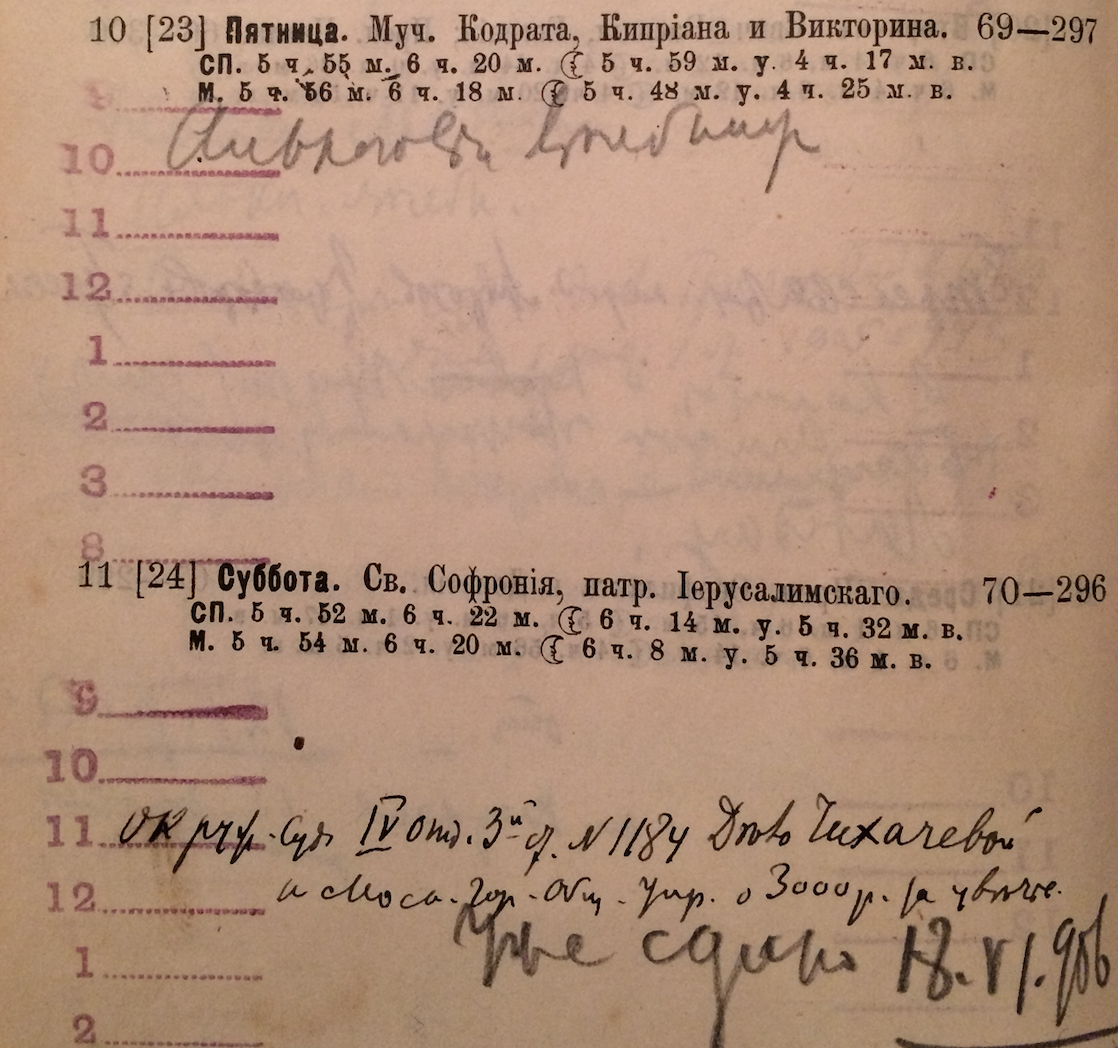 10 [23] Пятница. Муч. Кодрата, Кипріана и Викторина. 69—297
СП. 5 ч. 55 м. 6 ч. 20 м. 5 ч. 59 м. у. 4 ч. 17 м. в.
М. 5 ч. 56 м. 6 ч. 18 м. 5 ч. 48 м. у. 4 ч. 25 м. в.
9
10
11
12
1
2
3
8
11 [24] Суббота. Св. Софронія, патр. Іерусалимскаго. 70—296
СП. 5 ч. 52 м. 6 ч. 22 м. 6 ч. 14 м. у. 5 ч. 32 м. в.
М. 5 ч. 54 м. 6 ч. 20 м. 6 ч. 8 м. у. 5 ч. 36 м. в.
9
10
11 Окруж. Суд IV отд. 3й N 1184 Дѣло Лихачевой
12 и Моск. Гор. Общ. Упр. о 3000 р. за увѣчье.
1 18. VI. 906
2